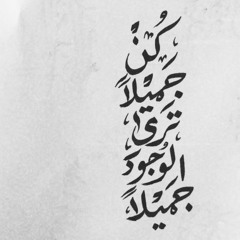 كُنْ
جَمِيْلاً
تَرَىٰ
الوُجُودَ
جَمِيْلاً